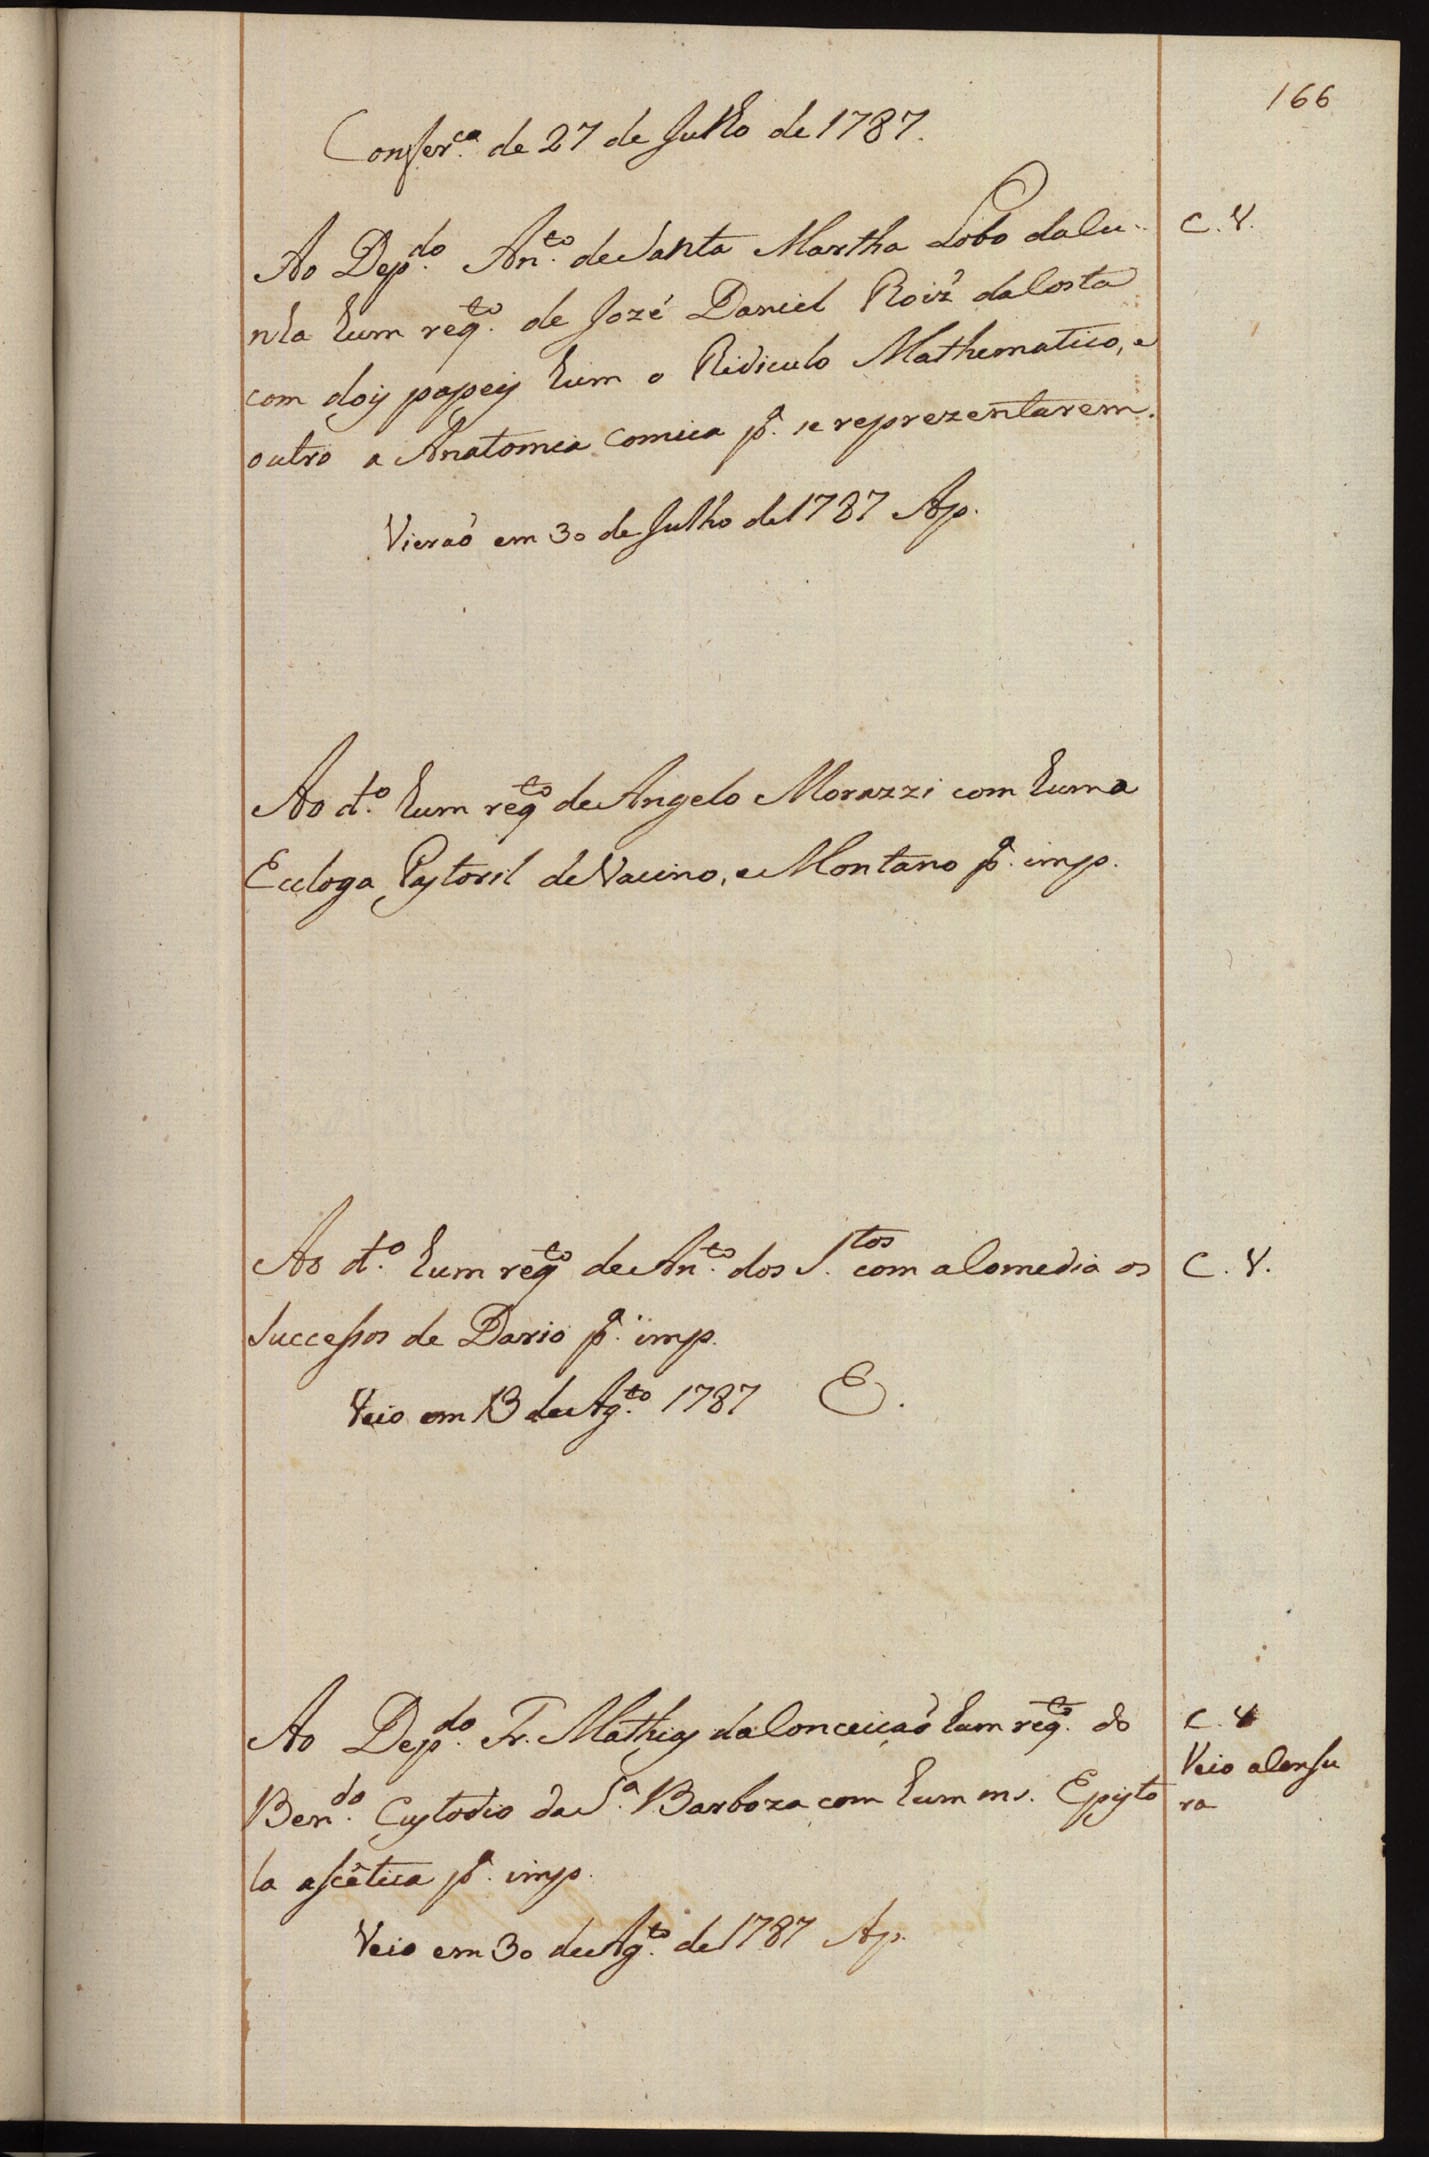 166
Confer.ca de 27 de Julho de 1787.
Ao Dep.do An.to de Santa Martha Lobo da Cu- C. V.
nha hum req.to de Jozé Daniel Roiz da Costa
com doys papeys hum o Ridiculo Mathematico, e
outro a Anatomia Comica p.a se reprezentarem.
Vieraõ em 30 de Julho de 1787 Ap.
Ao d.o hum req.to de Angelo Morazzi com huma
Ecloga Pastoril de Vacino, e Montano p.a imp.
Ao d.o hum req.to de An.to dos S.tos com a Comedia os C. V.
Successos de Dario p.a imp.
Veio em 13 de Ag.to 1787 E.
Ao Dep.do Fr. Mathias da Conceiçaõ hum req.to do C. V
Ben.do Custodio da S.a Barboza com hum ms. Episto Veio a Censu
la ascêtica p.a imp. ra
Veio em 30 de Ag.to de 1787 Ap.